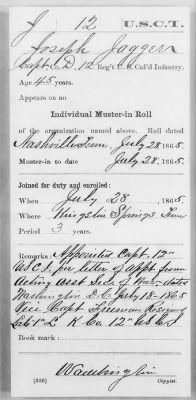 J 12 U.S.C.T.
Joseph Jaggerr
Capt. Co. D, 12 Reg't U. S. Col'd Infantry.
Age 45 years.
Appears on an
Individual Muster-in Roll
of the organization named above. Roll dated
Nashville Tenn, July 28, 1865.
Muster-in to date July 28, 1865.
Joined for duty and enrolled:
When July 28, 1865.
Where Kingston Springs Tenn
Period 3 years.
Remarks: Appointed Capt. 12"
U S C I. per letter of Appt from
Acting Asst Secy of War dated
Washington D. C. July 18 - 1865
Vice Capt Freeman Resigned
Late 1" L K Co. 12" U S C I
Book mark:
(339) Copyist.